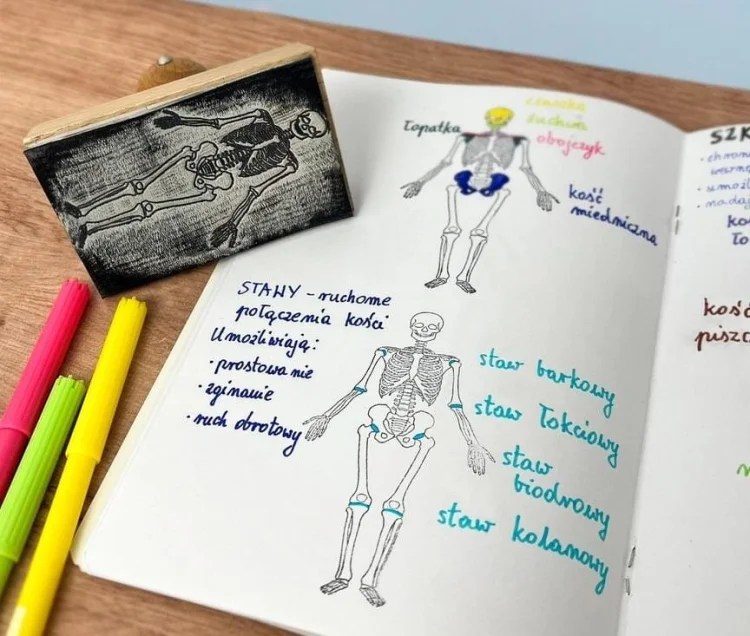 czaszka
żuchwa
łopatka
obojczyk
kość
miedniczna
STAWY - ruchome
połączenia kości
Umożliwiają:
· prostowanie
· zginanie
· ruch obrotowy
staw barkowy
staw łokciowy
staw
biodrowy
staw kolanowy
SZK
· chroni
· umożl
· nadaj
kość
piszc